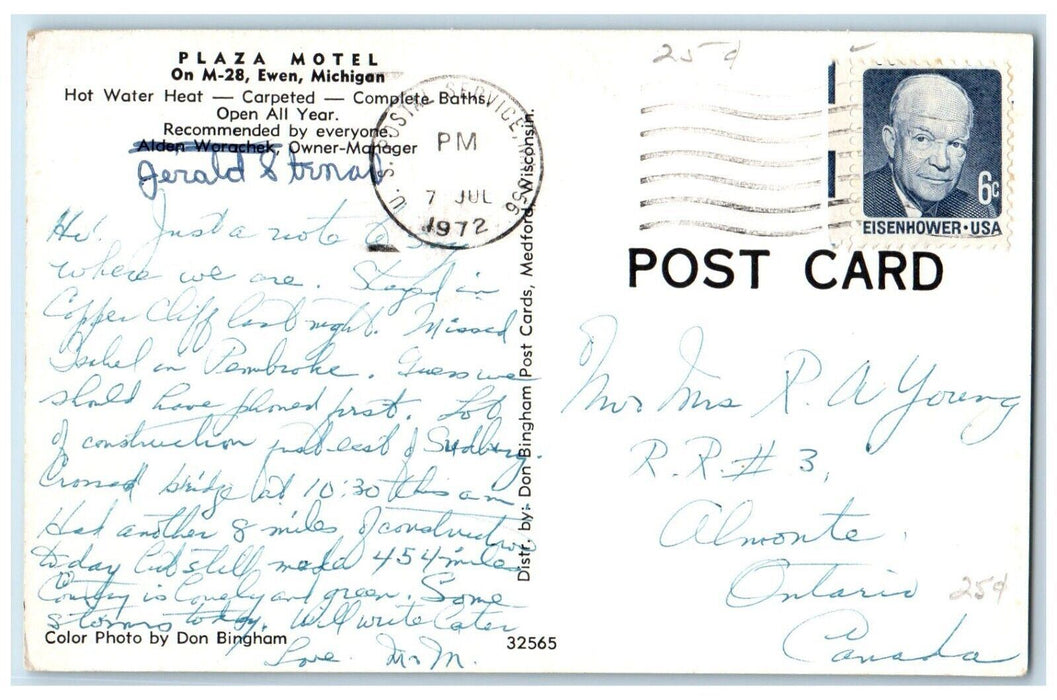 PLAZA MOTEL
On M-28, Ewen, Michigan
Hot Water Heat — Carpeted — Complete Baths,
Open All Year.
Recommended by everyone.
Alden Worachek, Owner-Manager
Gerald Sternal
Hi. Just a note to say
where we are. Stayed in
Copper Cliff last night. Missed
Isabel in Pembroke. Guess we
should have phoned first. Lot
of construction just east of Sudbury.
Crossed bridge at 10:30 this am
Had another 8 miles of construction
today but still made 454 miles.
Country is lovely and green. Some
storms today. Will write later
Love. M & M.
Color Photo by Don Bingham
32565
Distr. by: Don Bingham Post Cards, Medford, Wisconsin.
U.S. POSTAL SERVICE,
PM
7 JUL
1972
25¢
6c
EISENHOWER·USA
POST CARD
Mr & Mrs R. A Young
R.R. # 3,
Almonte,
Ontario
25¢
Canada